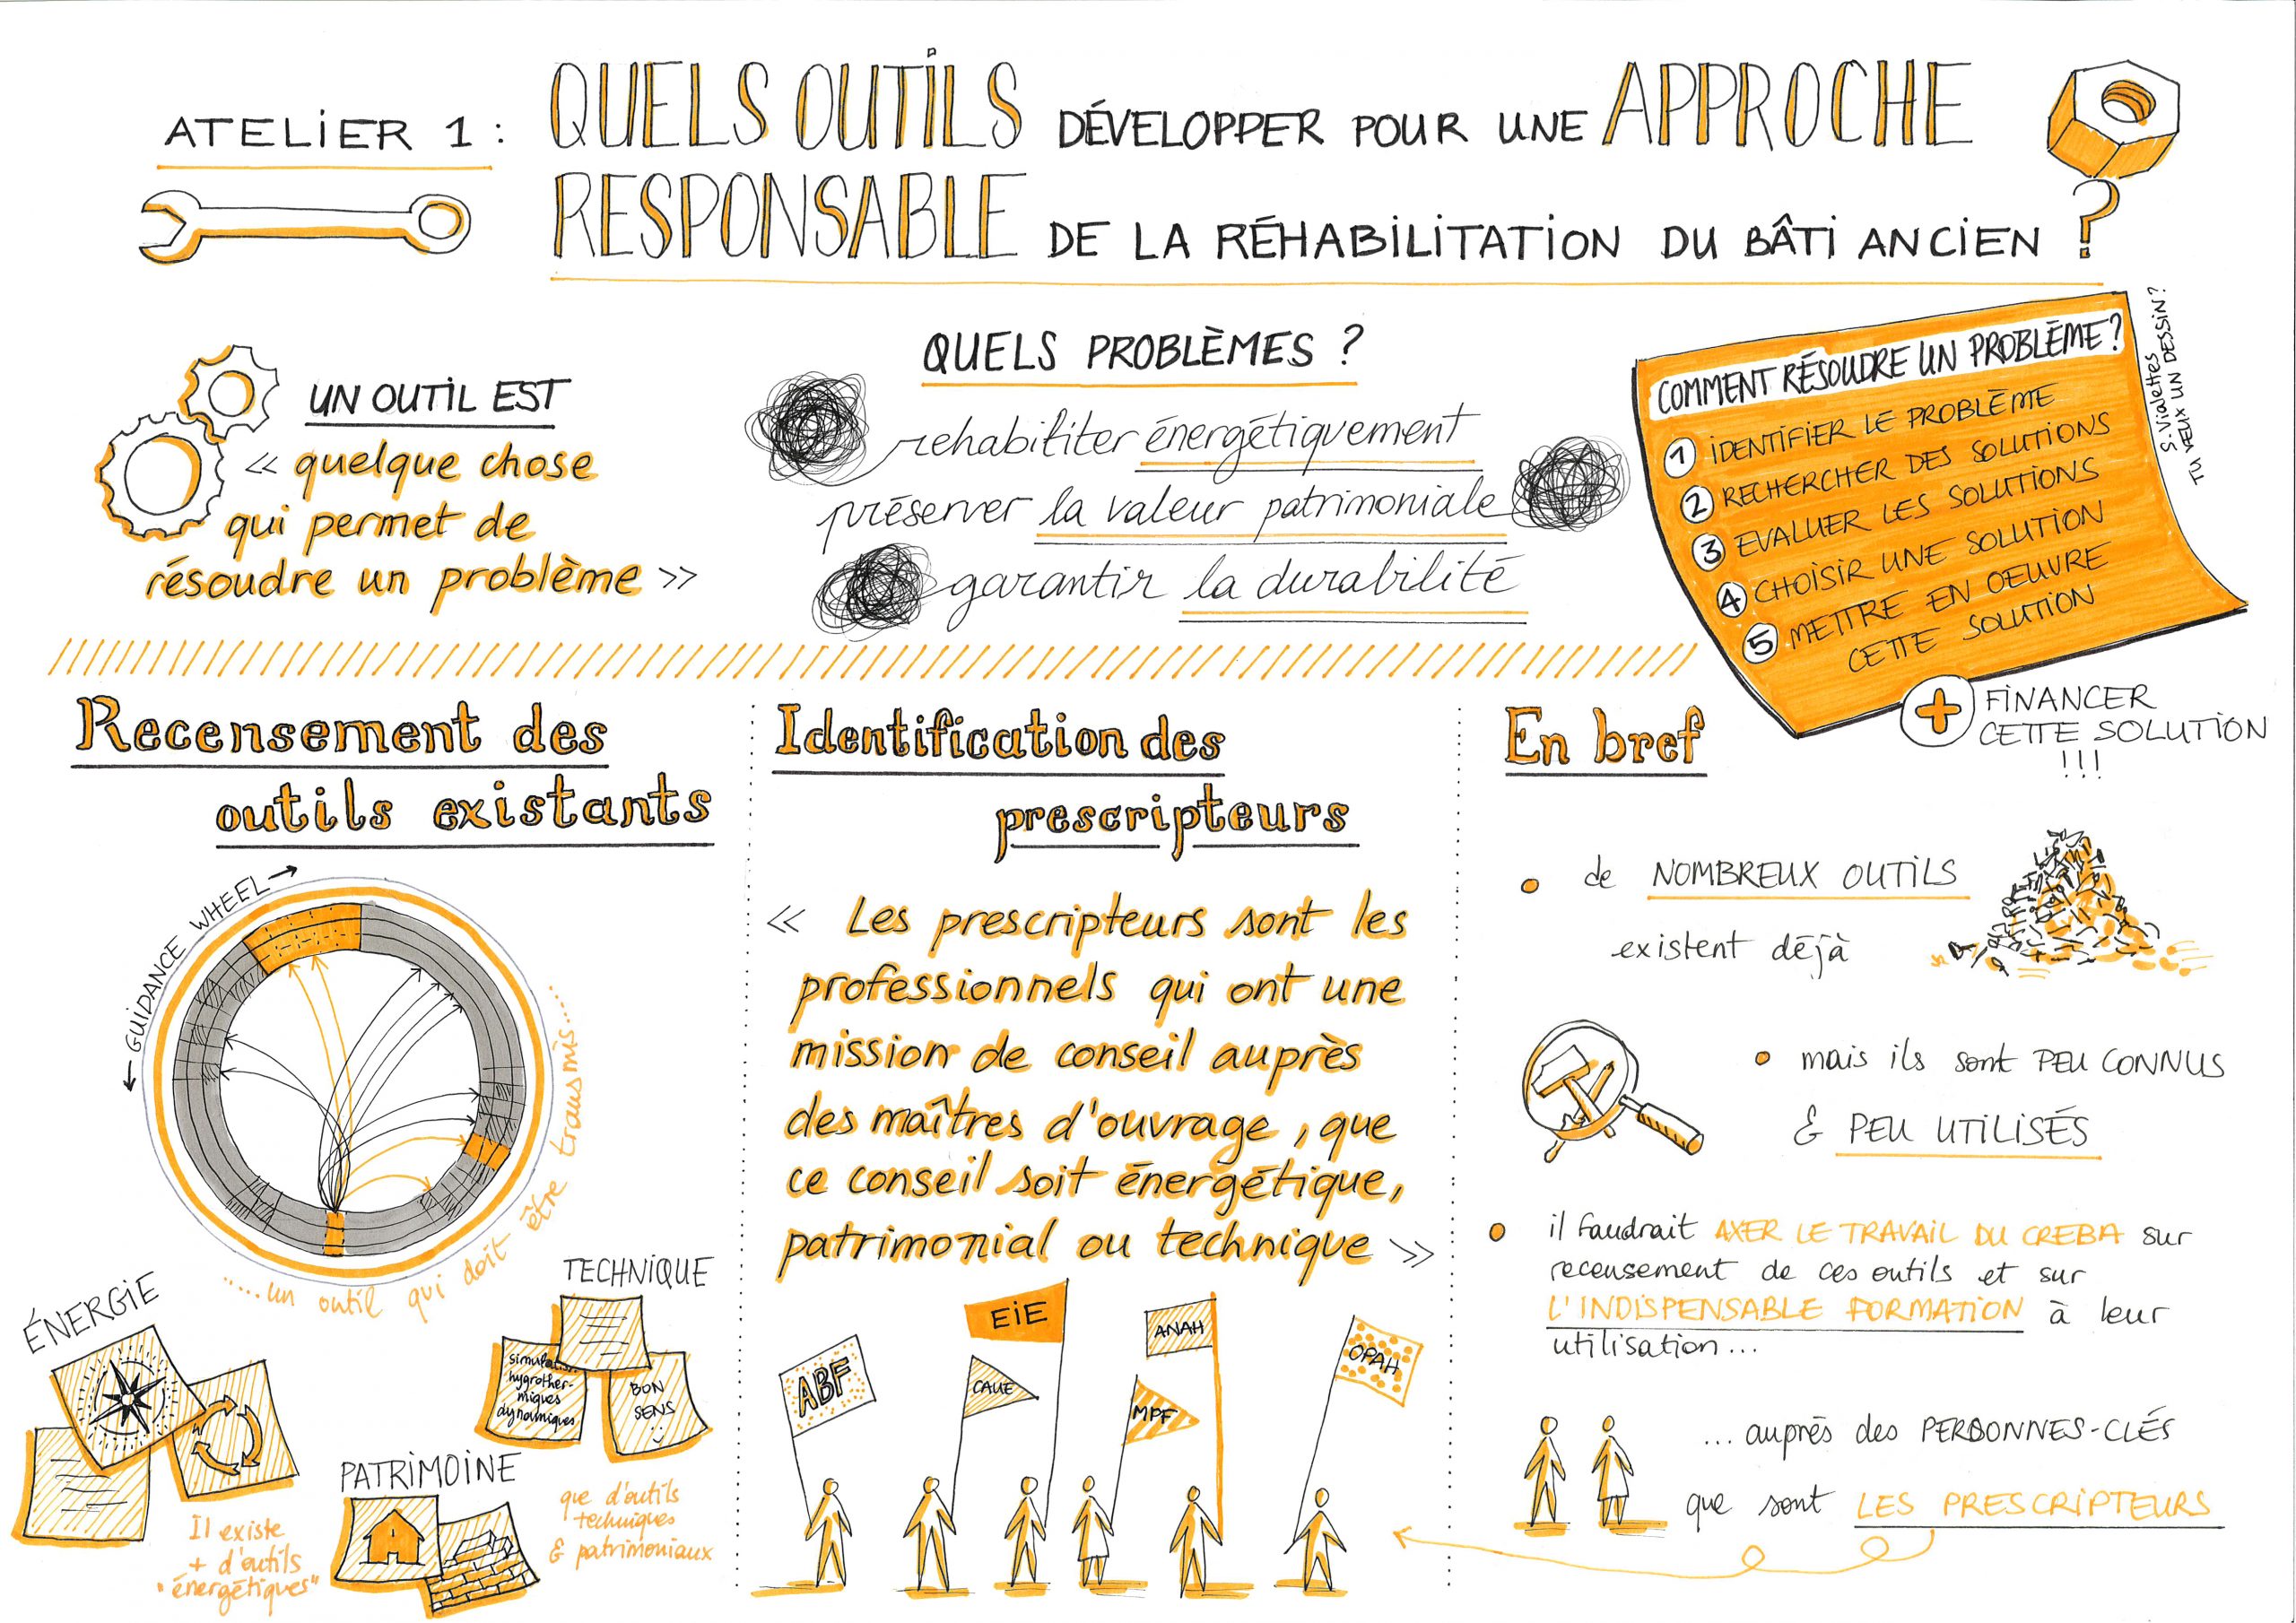 ATELIER 1 : QUELS OUTILS DÉVELOPPER POUR UNE APPROCHE
RESPONSABLE DE LA RÉHABILITATION DU BÂTI ANCIEN ?
UN OUTIL EST
« quelque chose
qui permet de
résoudre un problème »
QUELS PROBLÈMES ?
rehabiliter énergétiquement
préserver la valeur patrimoniale
garantir la durabilité
COMMENT RÉSOUDRE UN PROBLÈME ?
1 IDENTIFIER LE PROBLÈME
2 RECHERCHER DES SOLUTIONS
3 EVALUER LES SOLUTIONS
4 CHOISIR UNE SOLUTION
5 METTRE EN OEUVRE
CETTE SOLUTION
+ FINANCER
CETTE SOLUTION
!!!
S. Vialettes
TU VEUX UN DESSIN ?
Recensement des
outils existants
← GUIDANCE WHEEL →
.....un outil qui doit être transmis.....
ÉNERGIE
TECHNIQUE
simulations
hygrother-
miques
dynamiques
BON
SENS
PATRIMOINE
Il existe
+ d'outils
"énergétiques"
que d'outils
techniques
& patrimoniaux
Identification des
prescripteurs
« Les prescripteurs sont les
professionnels qui ont une
mission de conseil auprès
des maîtres d'ouvrage, que
ce conseil soit énergétique,
patrimonial ou technique »
ABF
EIE
CAUE
ANAH
MPF
OPAH
En bref
• de NOMBREUX OUTILS
existent déjà
• mais ils sont PEU CONNUS
& PEU UTILISÉS
• il faudrait AXER LE TRAVAIL DU CREBA sur
recensement de ces outils et sur
L'INDISPENSABLE FORMATION à leur
utilisation...
... auprès des PERSONNES-CLÉS
que sont LES PRESCRIPTEURS